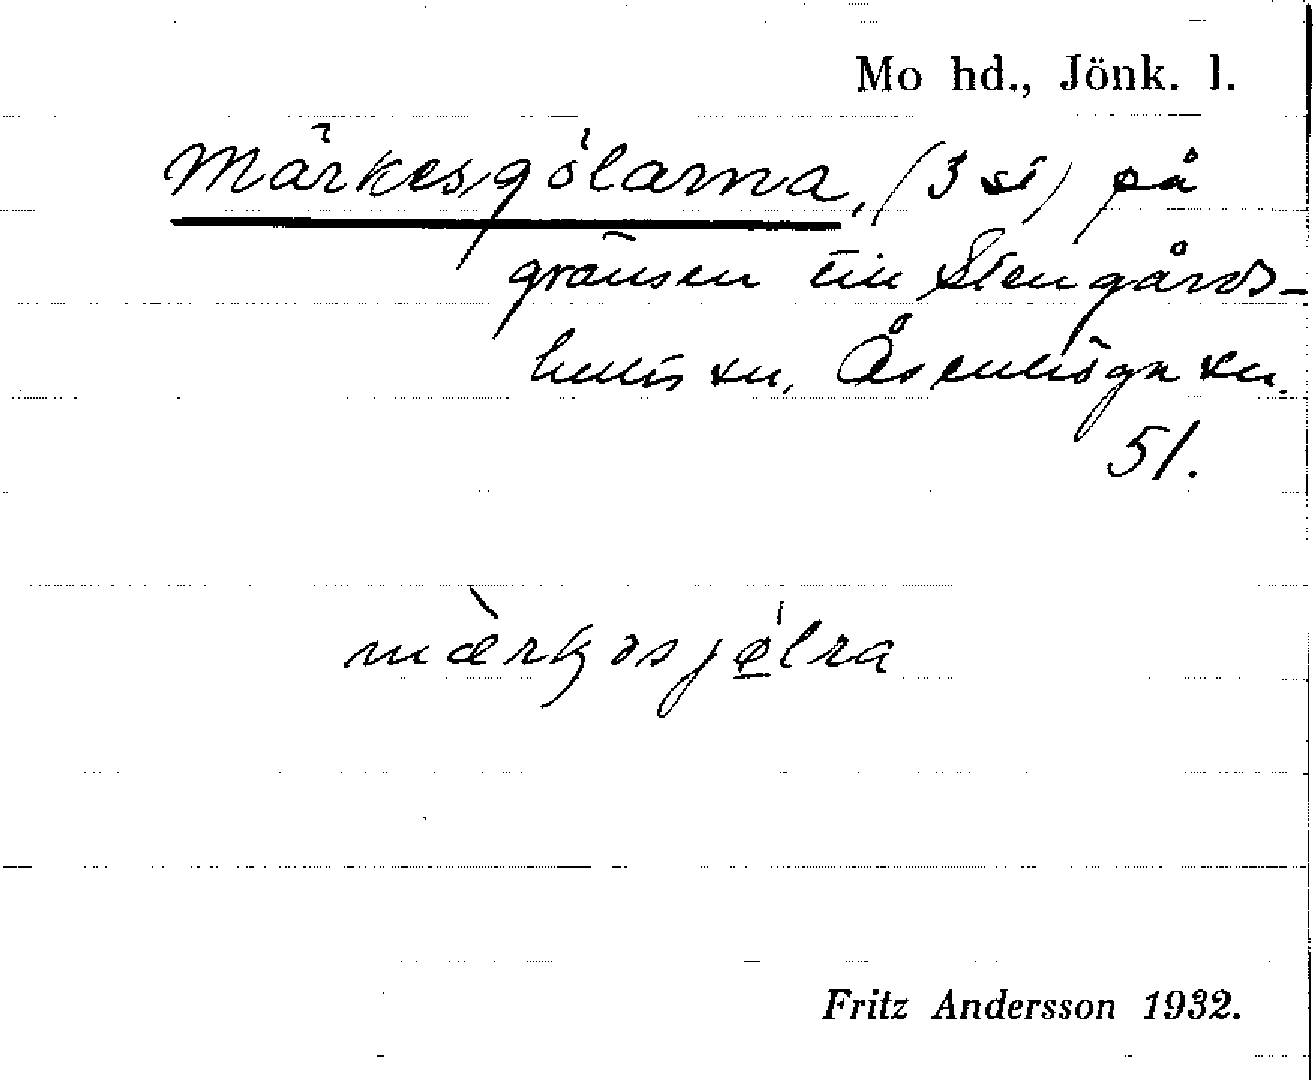 Mo hd., Jönk. l.
Märkesgölarna, (3 st) på
gränsen till Stengårds-
hults sn, Åsenhöga sn.
51.
mærkəsjølra
Fritz Andersson 1932.